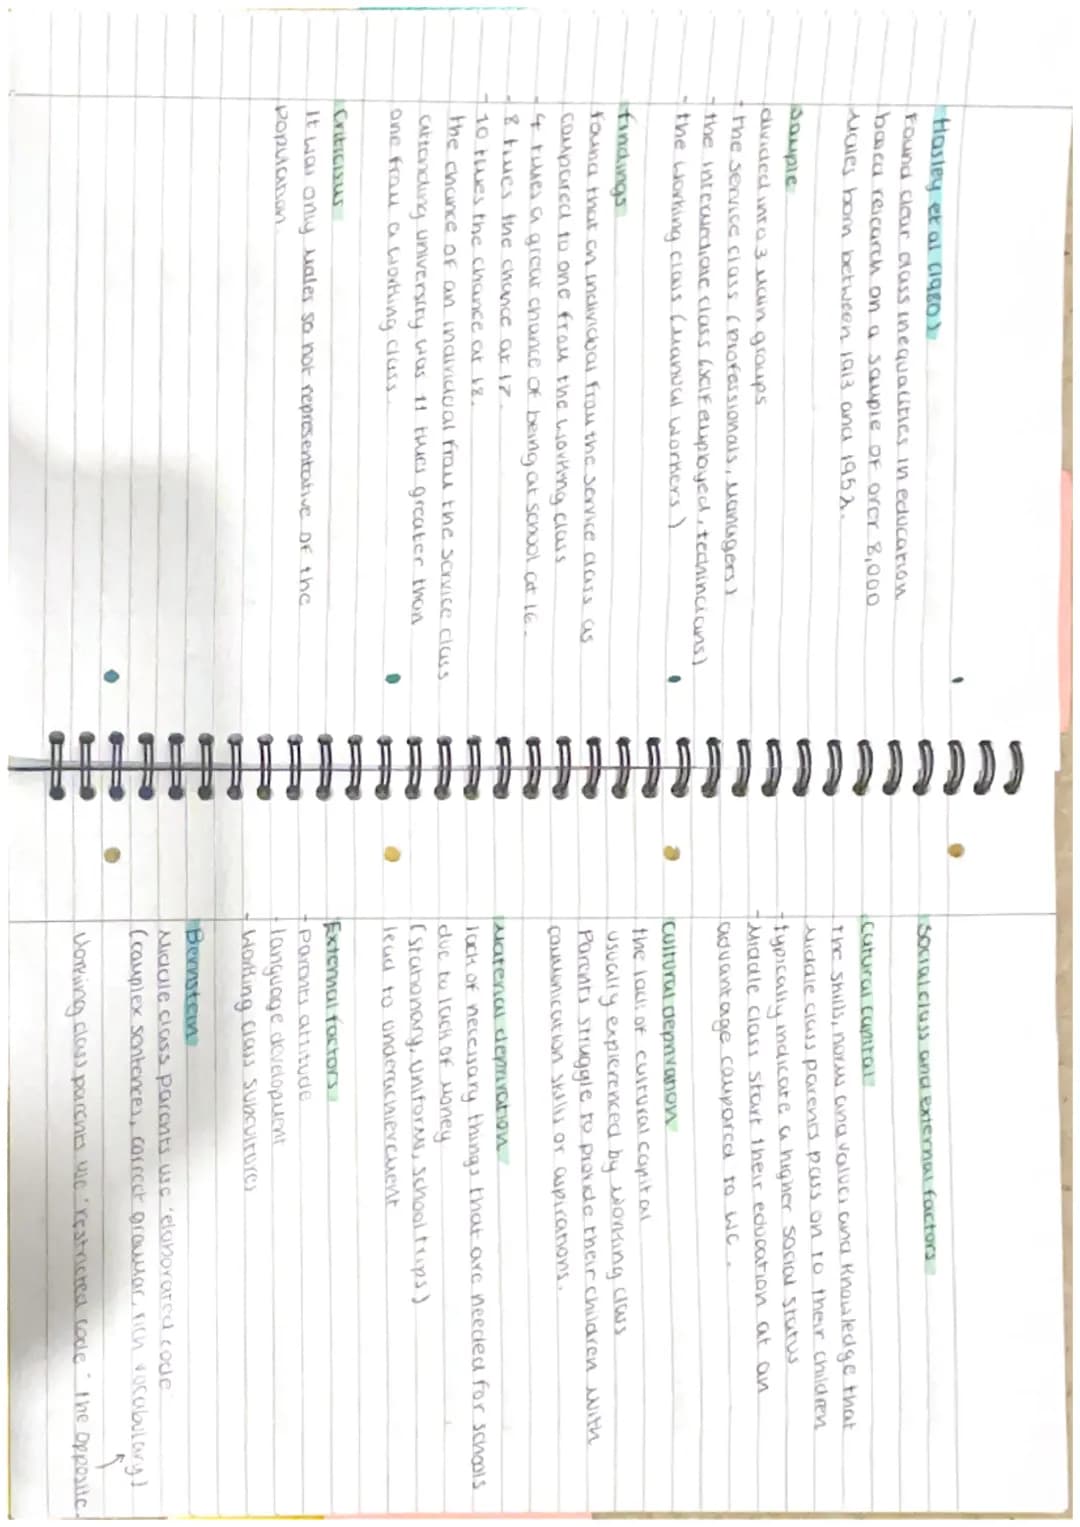 Hasley et al (1980)
Found clear class inequalities in education
based research on a sample of over 8,000
males born between 1913 and 1952.
Sample
divided into 3 main groups
- the service class (professionals, managers)
- the intermediate class (self employed, techincians)
- the working class (manual workers)
findings
found that an individual from the service class as
compared to one from the working class
- 4 times a great chance of being at school at 16.
- 8 times the chance at 17.
- 10 times the chance at 18.
the chance of an individual from the service class
attending university was 11 times greater than
one from a working class.
Criticisms
It was only males so not representative of the
population
Social class and external factors
Cultural capital
the skills, norms and values and knowledge that
middle class parents pass on to their children
- typically indicate a higher social status
- Middle class start their education at an
advantage compared to WC.
Cultural deprivation
the lack of cultural capital
usually expierenced by working class
Parents struggle to provide their children with
communication skills or aspirations.
Material deprivation
lack of necessary things that are needed for schools
due to lack of money
(stationary, uniforms, school trips)
lead to underachievement
External factors
- Parents attitude
- language development
- Working class subcultures
Bernstein
Middle class parents use 'elaborated code'
(complex sentences, correct grammar, rich vocabulary)
Working class parents use 'restricted code' the opposite